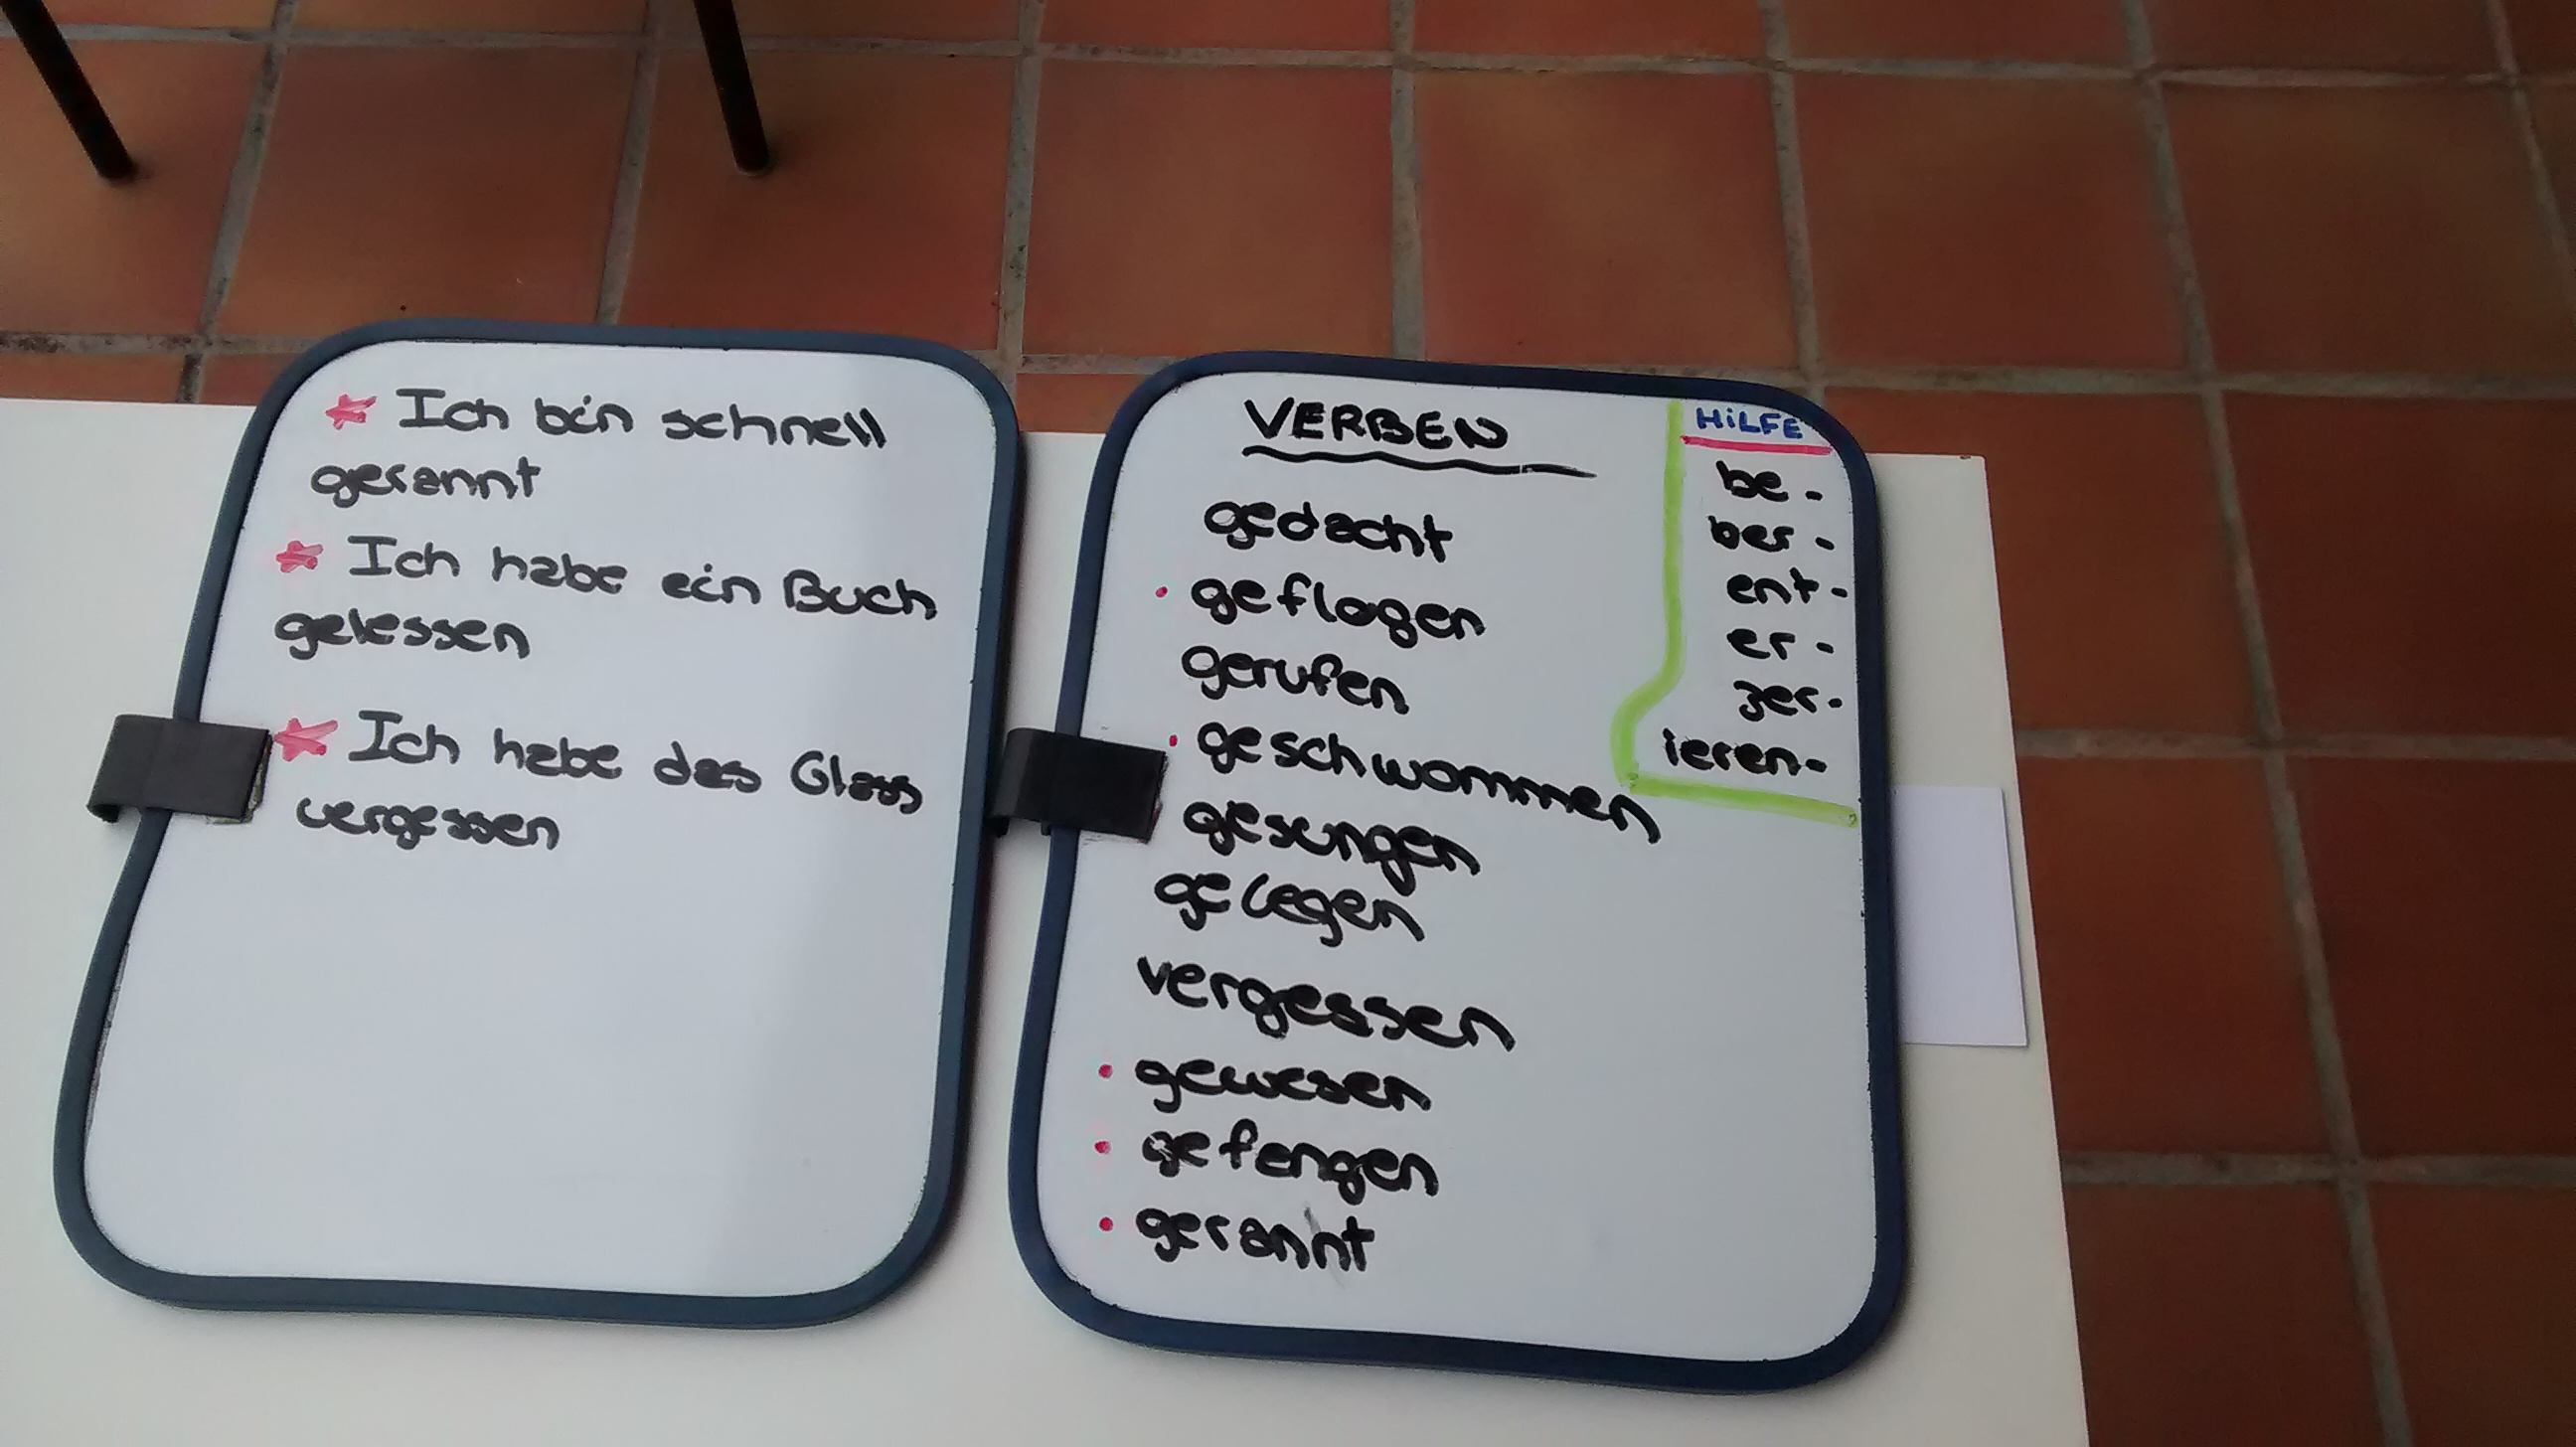 Ich bin schnell
gerannt
Ich habe ein Buch
gelessen
Ich habe das Glass
vergessen
VERBEN
gedacht
geflogen
gerufen
geschwommen
gesungen
gelegen
vergessen
gewesen
gefangen
gerannt
HiLFE
be-
ber-
ent-
er-
zer-
ieren-